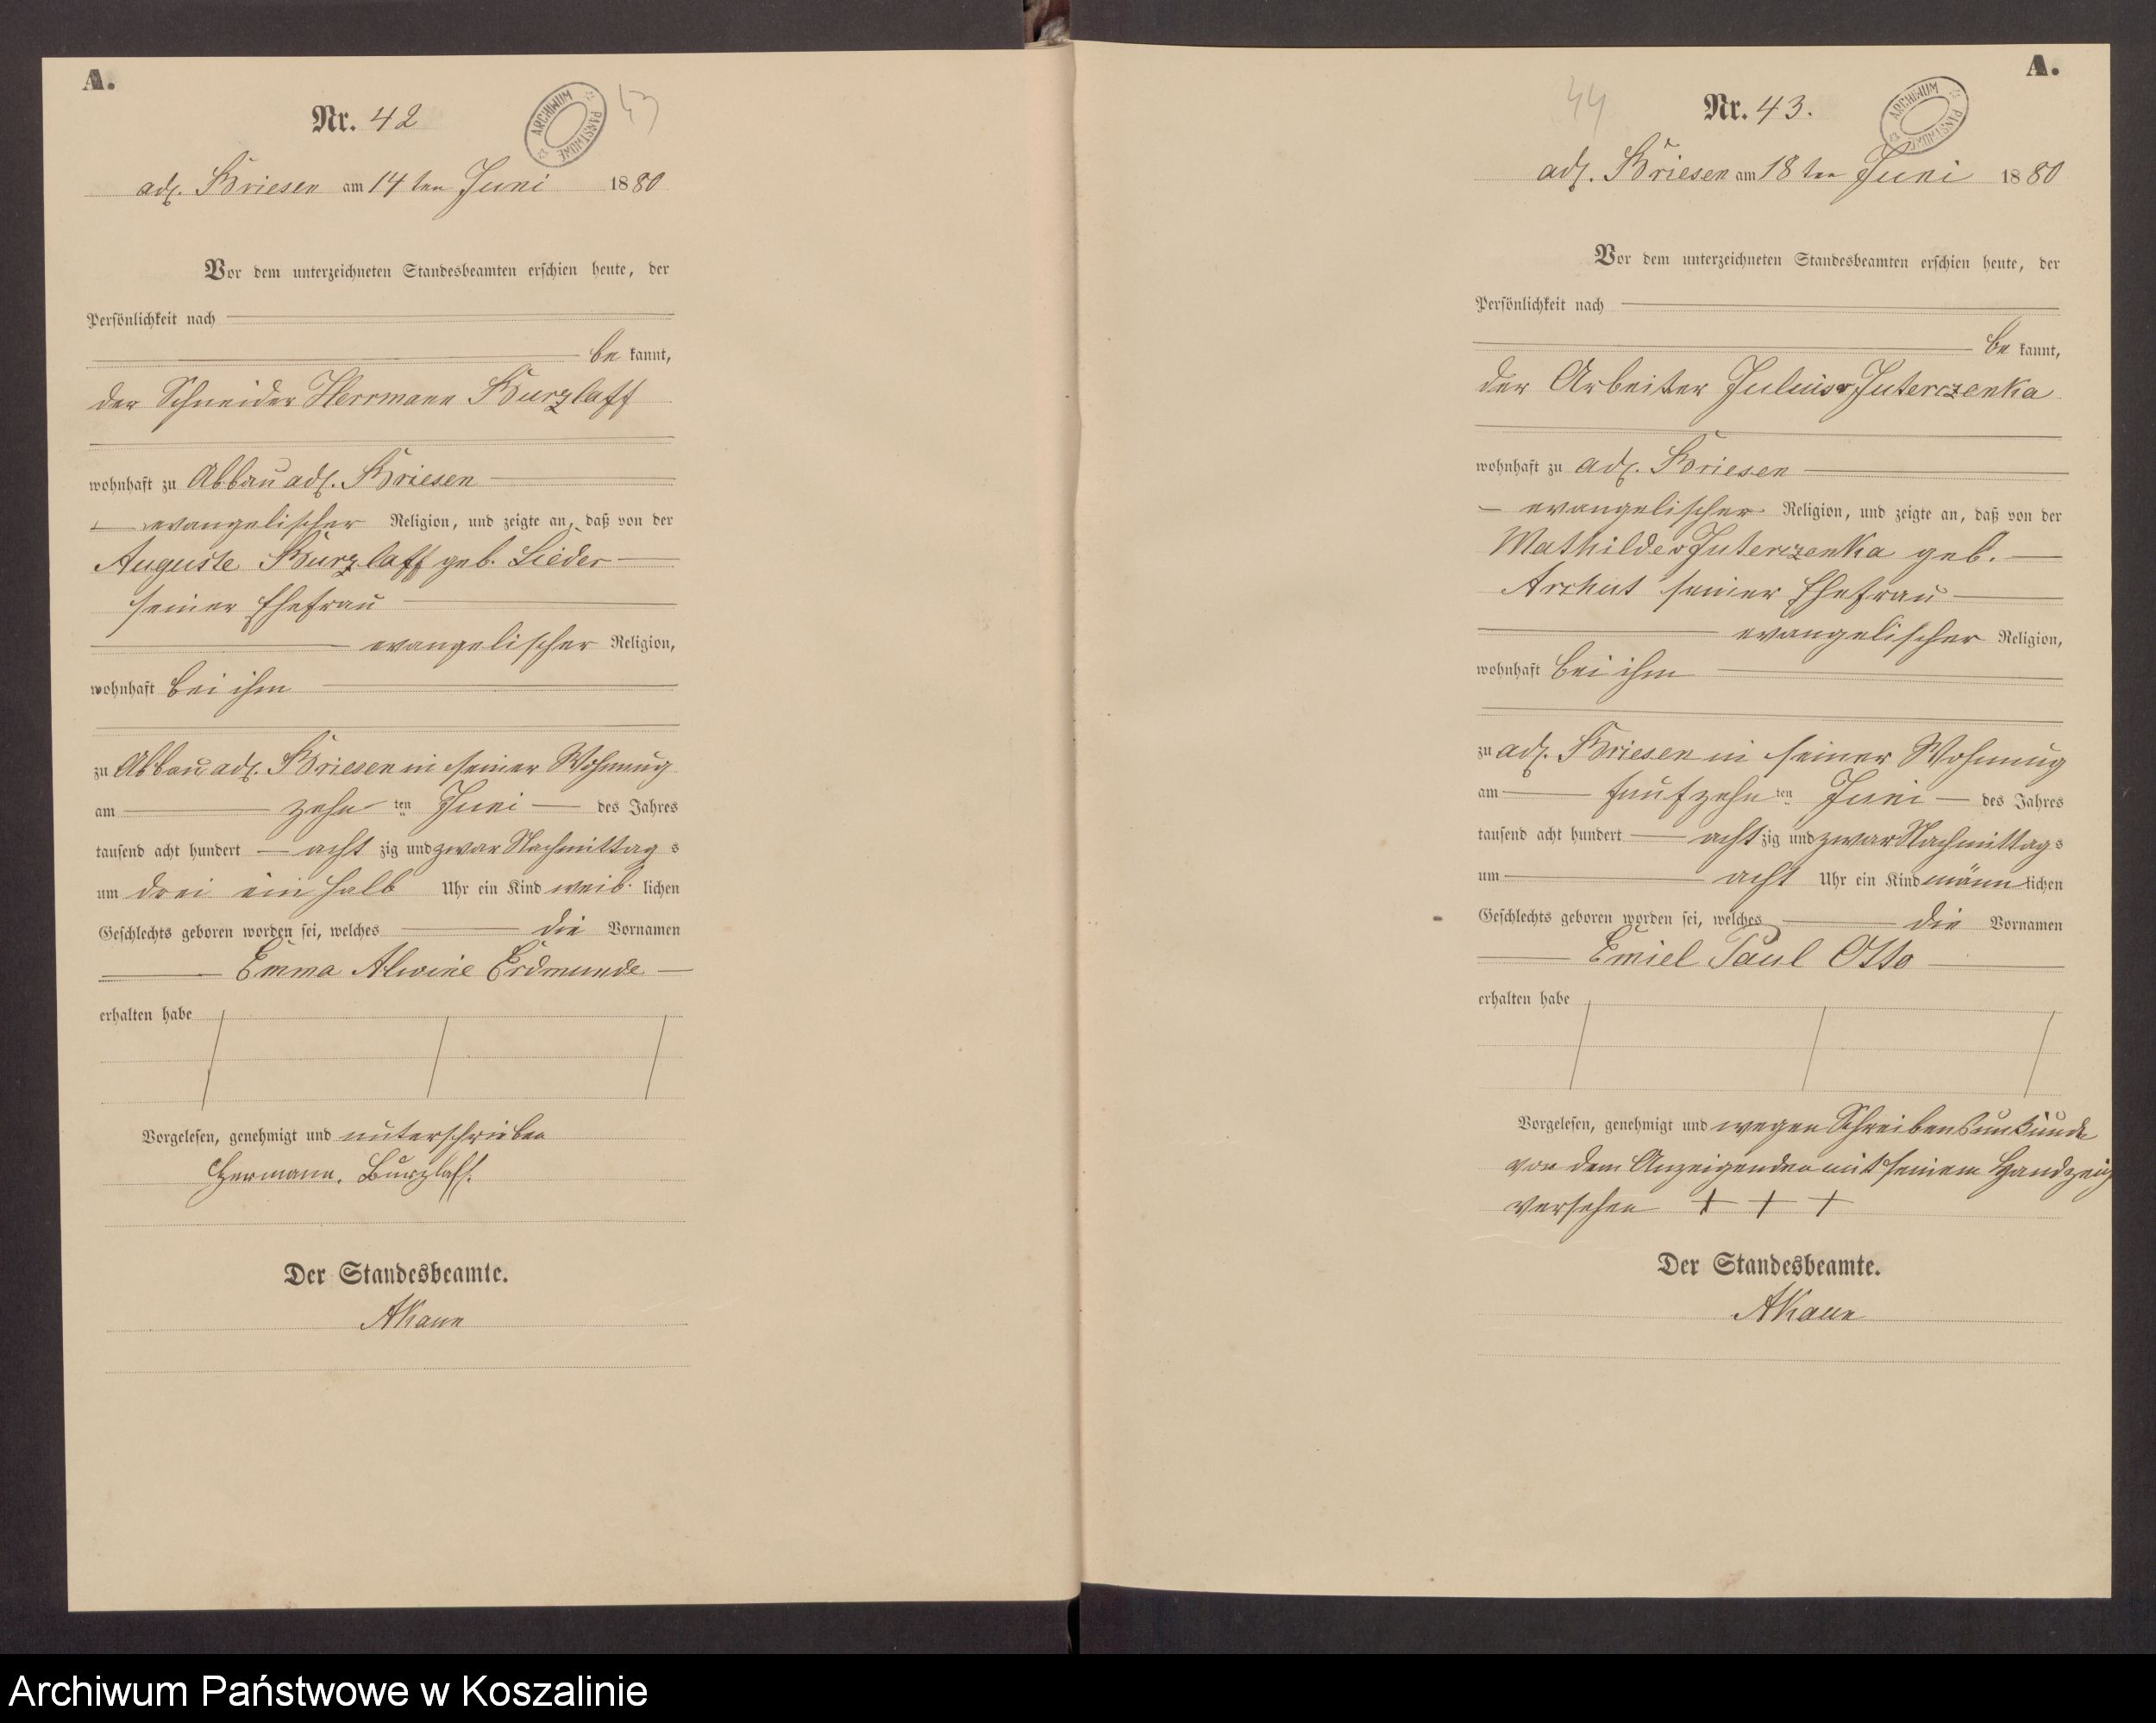 A.
Nr. 42
ARCHIWUM PAŃSTWOWE
43
adl. Briesen am 14ten Juni 1880
Vor dem unterzeichneten Standesbeamten erschien heute, der
Persönlichkeit nach
be kannt,
der Schneider Herrmann Burzlaff
wohnhaft zu Abbau adl. Briesen
evangelischer Religion, und zeigte an, daß von der
Auguste Burzlaff geb. Lieder
seiner Ehefrau
evangelischer Religion,
wohnhaft bei ihm
zu Abbau adl. Briesen in seiner Wohnung
am zehn ten Juni des Jahres
tausend acht hundert acht zig und zwar Nachmittag s
um drei ein halb Uhr ein Kind weib lichen
Geschlechts geboren worden sei, welches die Vornamen
Emma Alwine Erdmunde
erhalten habe
Vorgelesen, genehmigt und unterschrieben
Hermann. Burzlaff.
Der Standesbeamte.
AKann
A.
44
Nr. 43.
ARCHIWUM PAŃSTWOWE
adl. Briesen am 18ten Juni 1880
Vor dem unterzeichneten Standesbeamten erschien heute, der
Persönlichkeit nach
be kannt,
der Arbeiter Julius v Juterczenka
wohnhaft zu adl. Briesen
evangelischer Religion, und zeigte an, daß von der
Mathilde v Juterczenka geb.
Archut seiner Ehefrau
evangelischer Religion,
wohnhaft bei ihm
zu adl. Briesen in seiner Wohnung
am funfzehn ten Juni des Jahres
tausend acht hundert acht zig und zwar Nachmittag s
um acht Uhr ein Kind männ lichen
Geschlechts geboren worden sei, welches die Vornamen
Emiel Paul Otto
erhalten habe
Vorgelesen, genehmigt und wegen Schreibensunkunde
von dem Anzeigenden mit seinem Handzeig
versehen + + +
Der Standesbeamte.
AKann
Archiwum Państwowe w Koszalinie